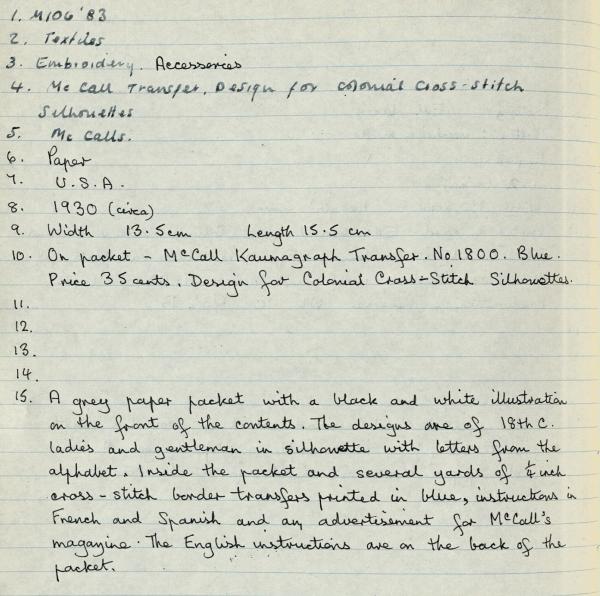 1. M106 '83
2. Textiles
3. Embroidery. Accessories
4. McCall Transfer. Design for Colonial Cross-stitch
Silhouettes
5. McCalls.
6. Paper
7. U.S.A.
8. 1930 (circa)
9. Width 13.5cm Length 15.5 cm
10. On packet - McCall Kaumagraph Transfer. No 1800. Blue.
Price 35 cents. Design for Colonial Cross-Stitch Silhouettes.
11.
12.
13.
14.
15. A grey paper packet with a black and white illustration
on the front of the contents. The designs are of 18th C.
ladies and gentleman in silhouette with letters from the
alphabet. Inside the packet and several yards of ¼ inch
cross-stitch border transfers printed in blue, instructions in
French and Spanish and an advertisement for McCall's
magazine. The English instructions are on the back of the
packet.